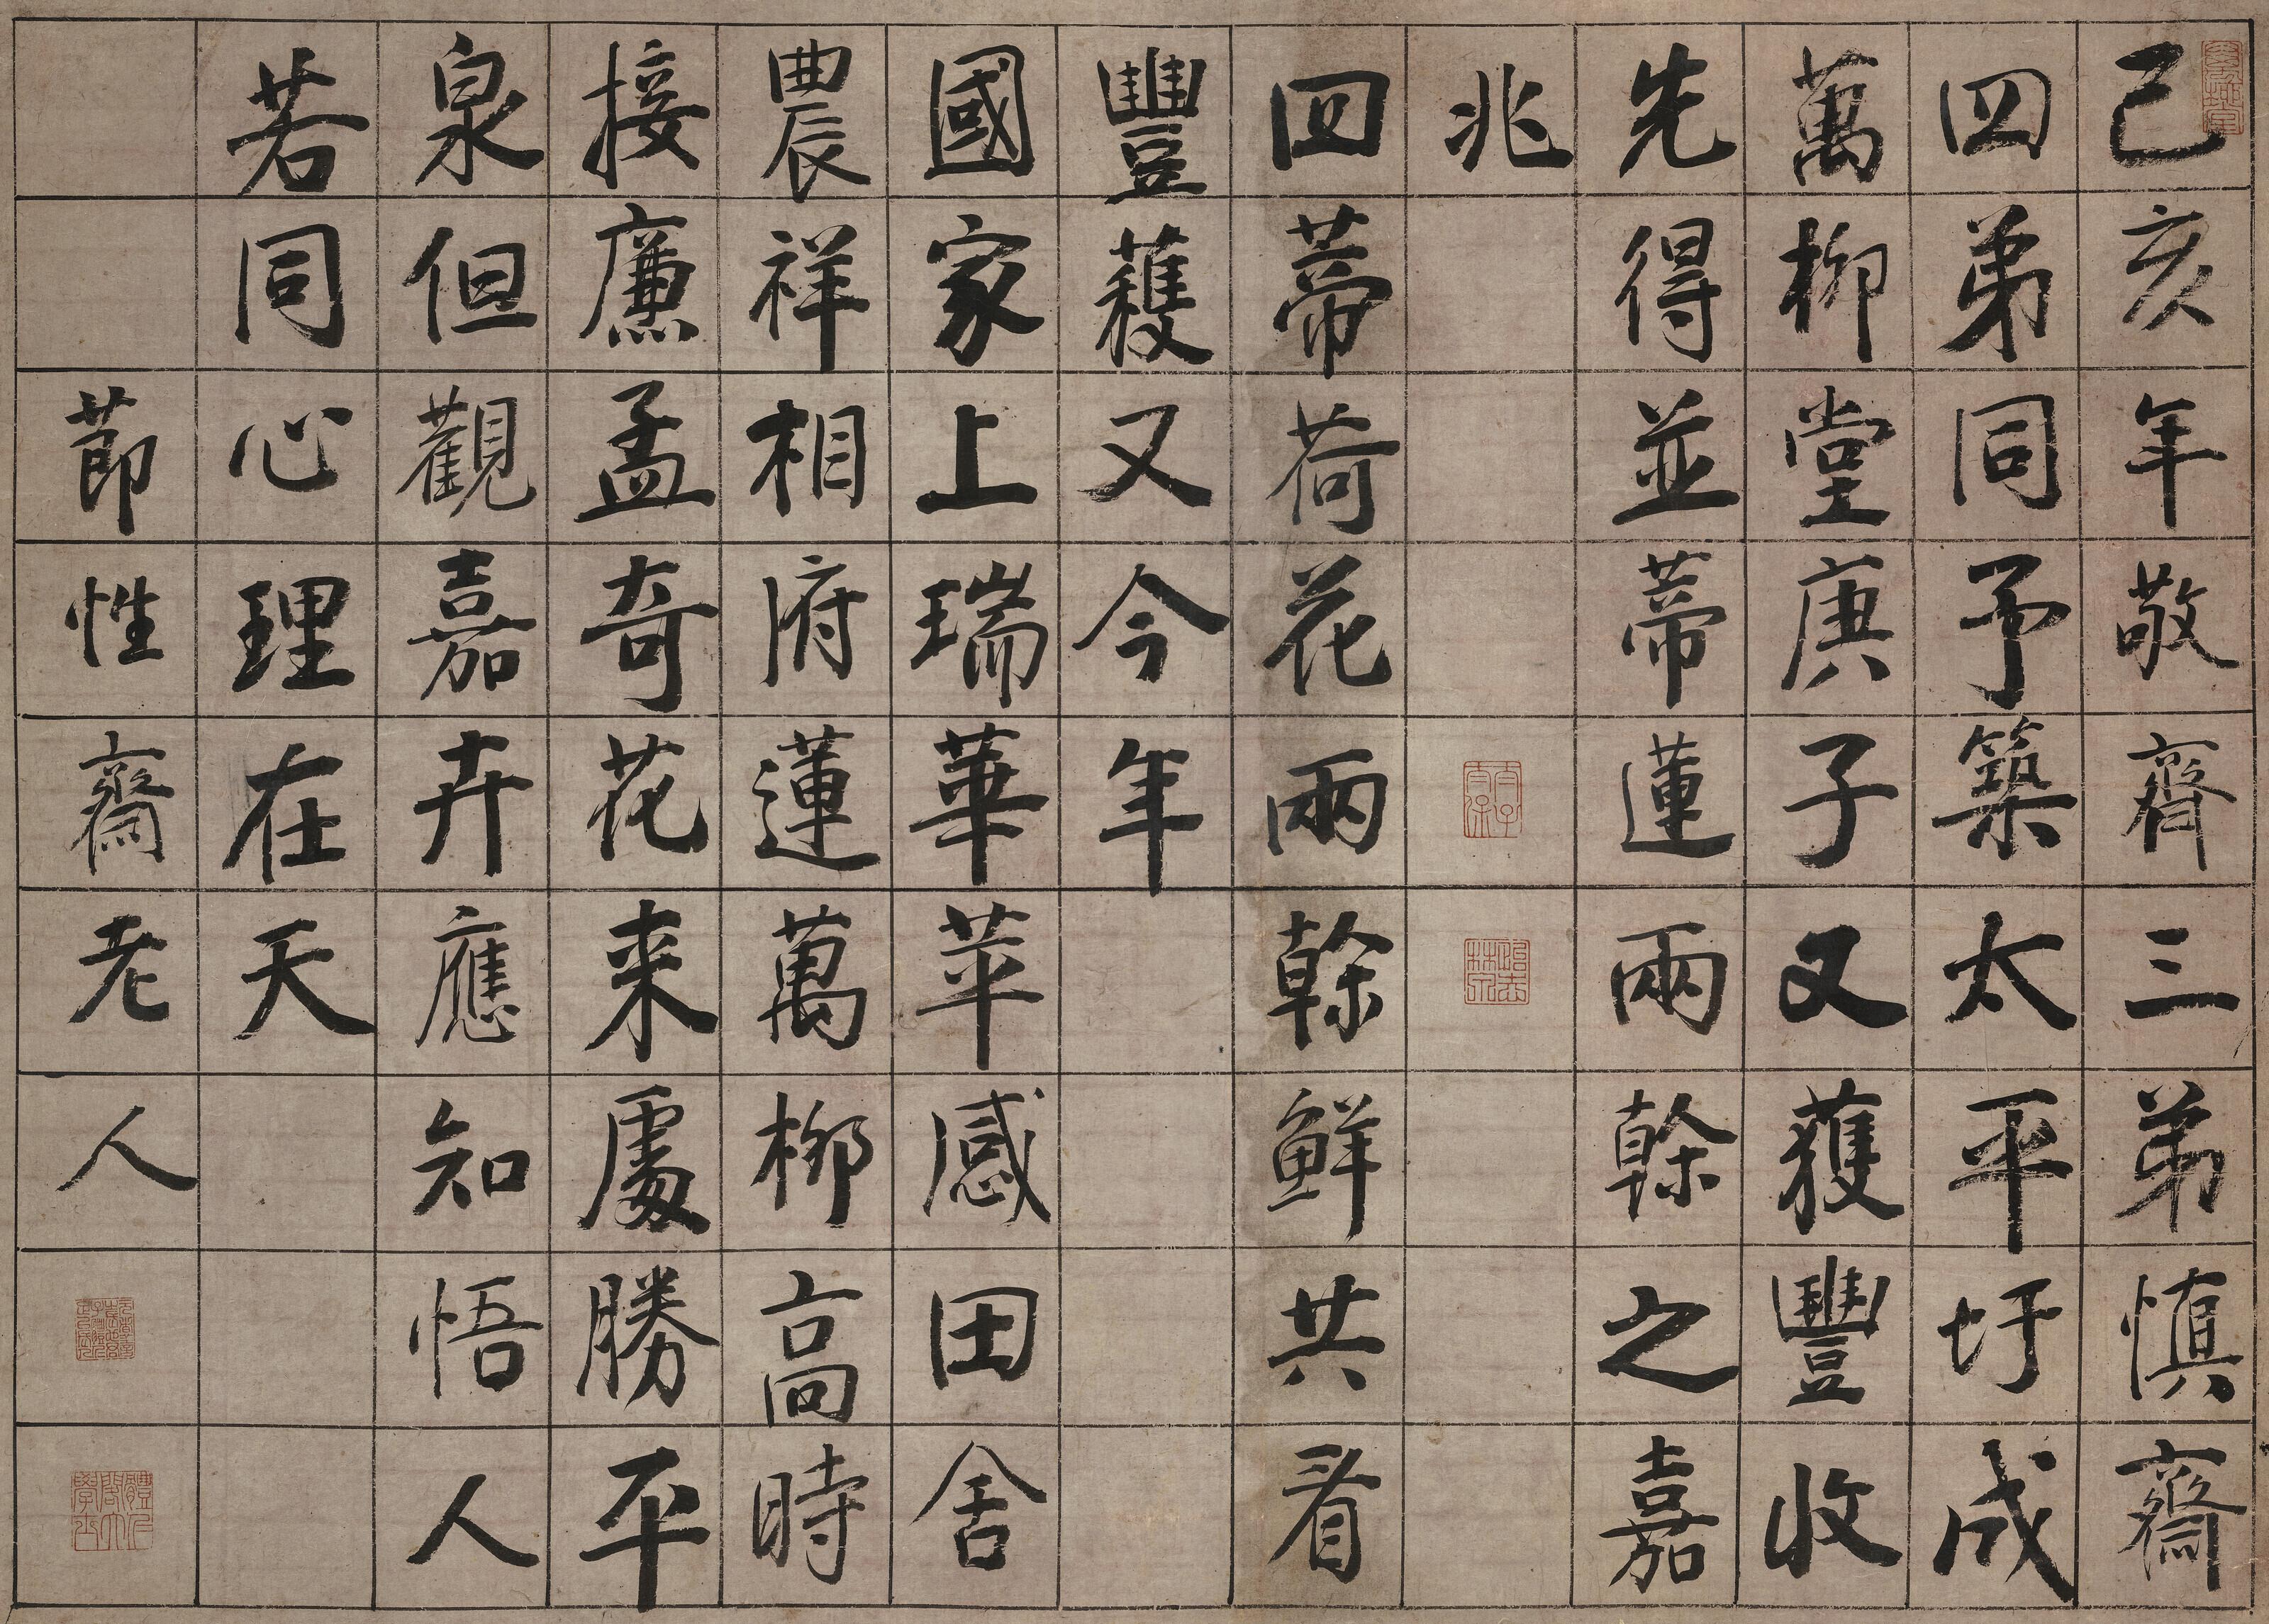 己亥年敬齋三弟慎齋
四弟同予築太平圩成
萬柳堂庚子又獲豐收
先得並蒂蓮兩榦之嘉
兆
四蒂荷花兩榦鮮共看
豐穫又今年
國家上瑞華苹感田舍
農祥相府蓮萬柳高時
接廉孟奇花來處勝平
泉但觀嘉卉應知悟人
若同心理在天
節性齋老人